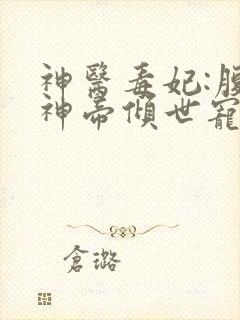 神醫毒妃:腹
神帝傾世寵
倉璐